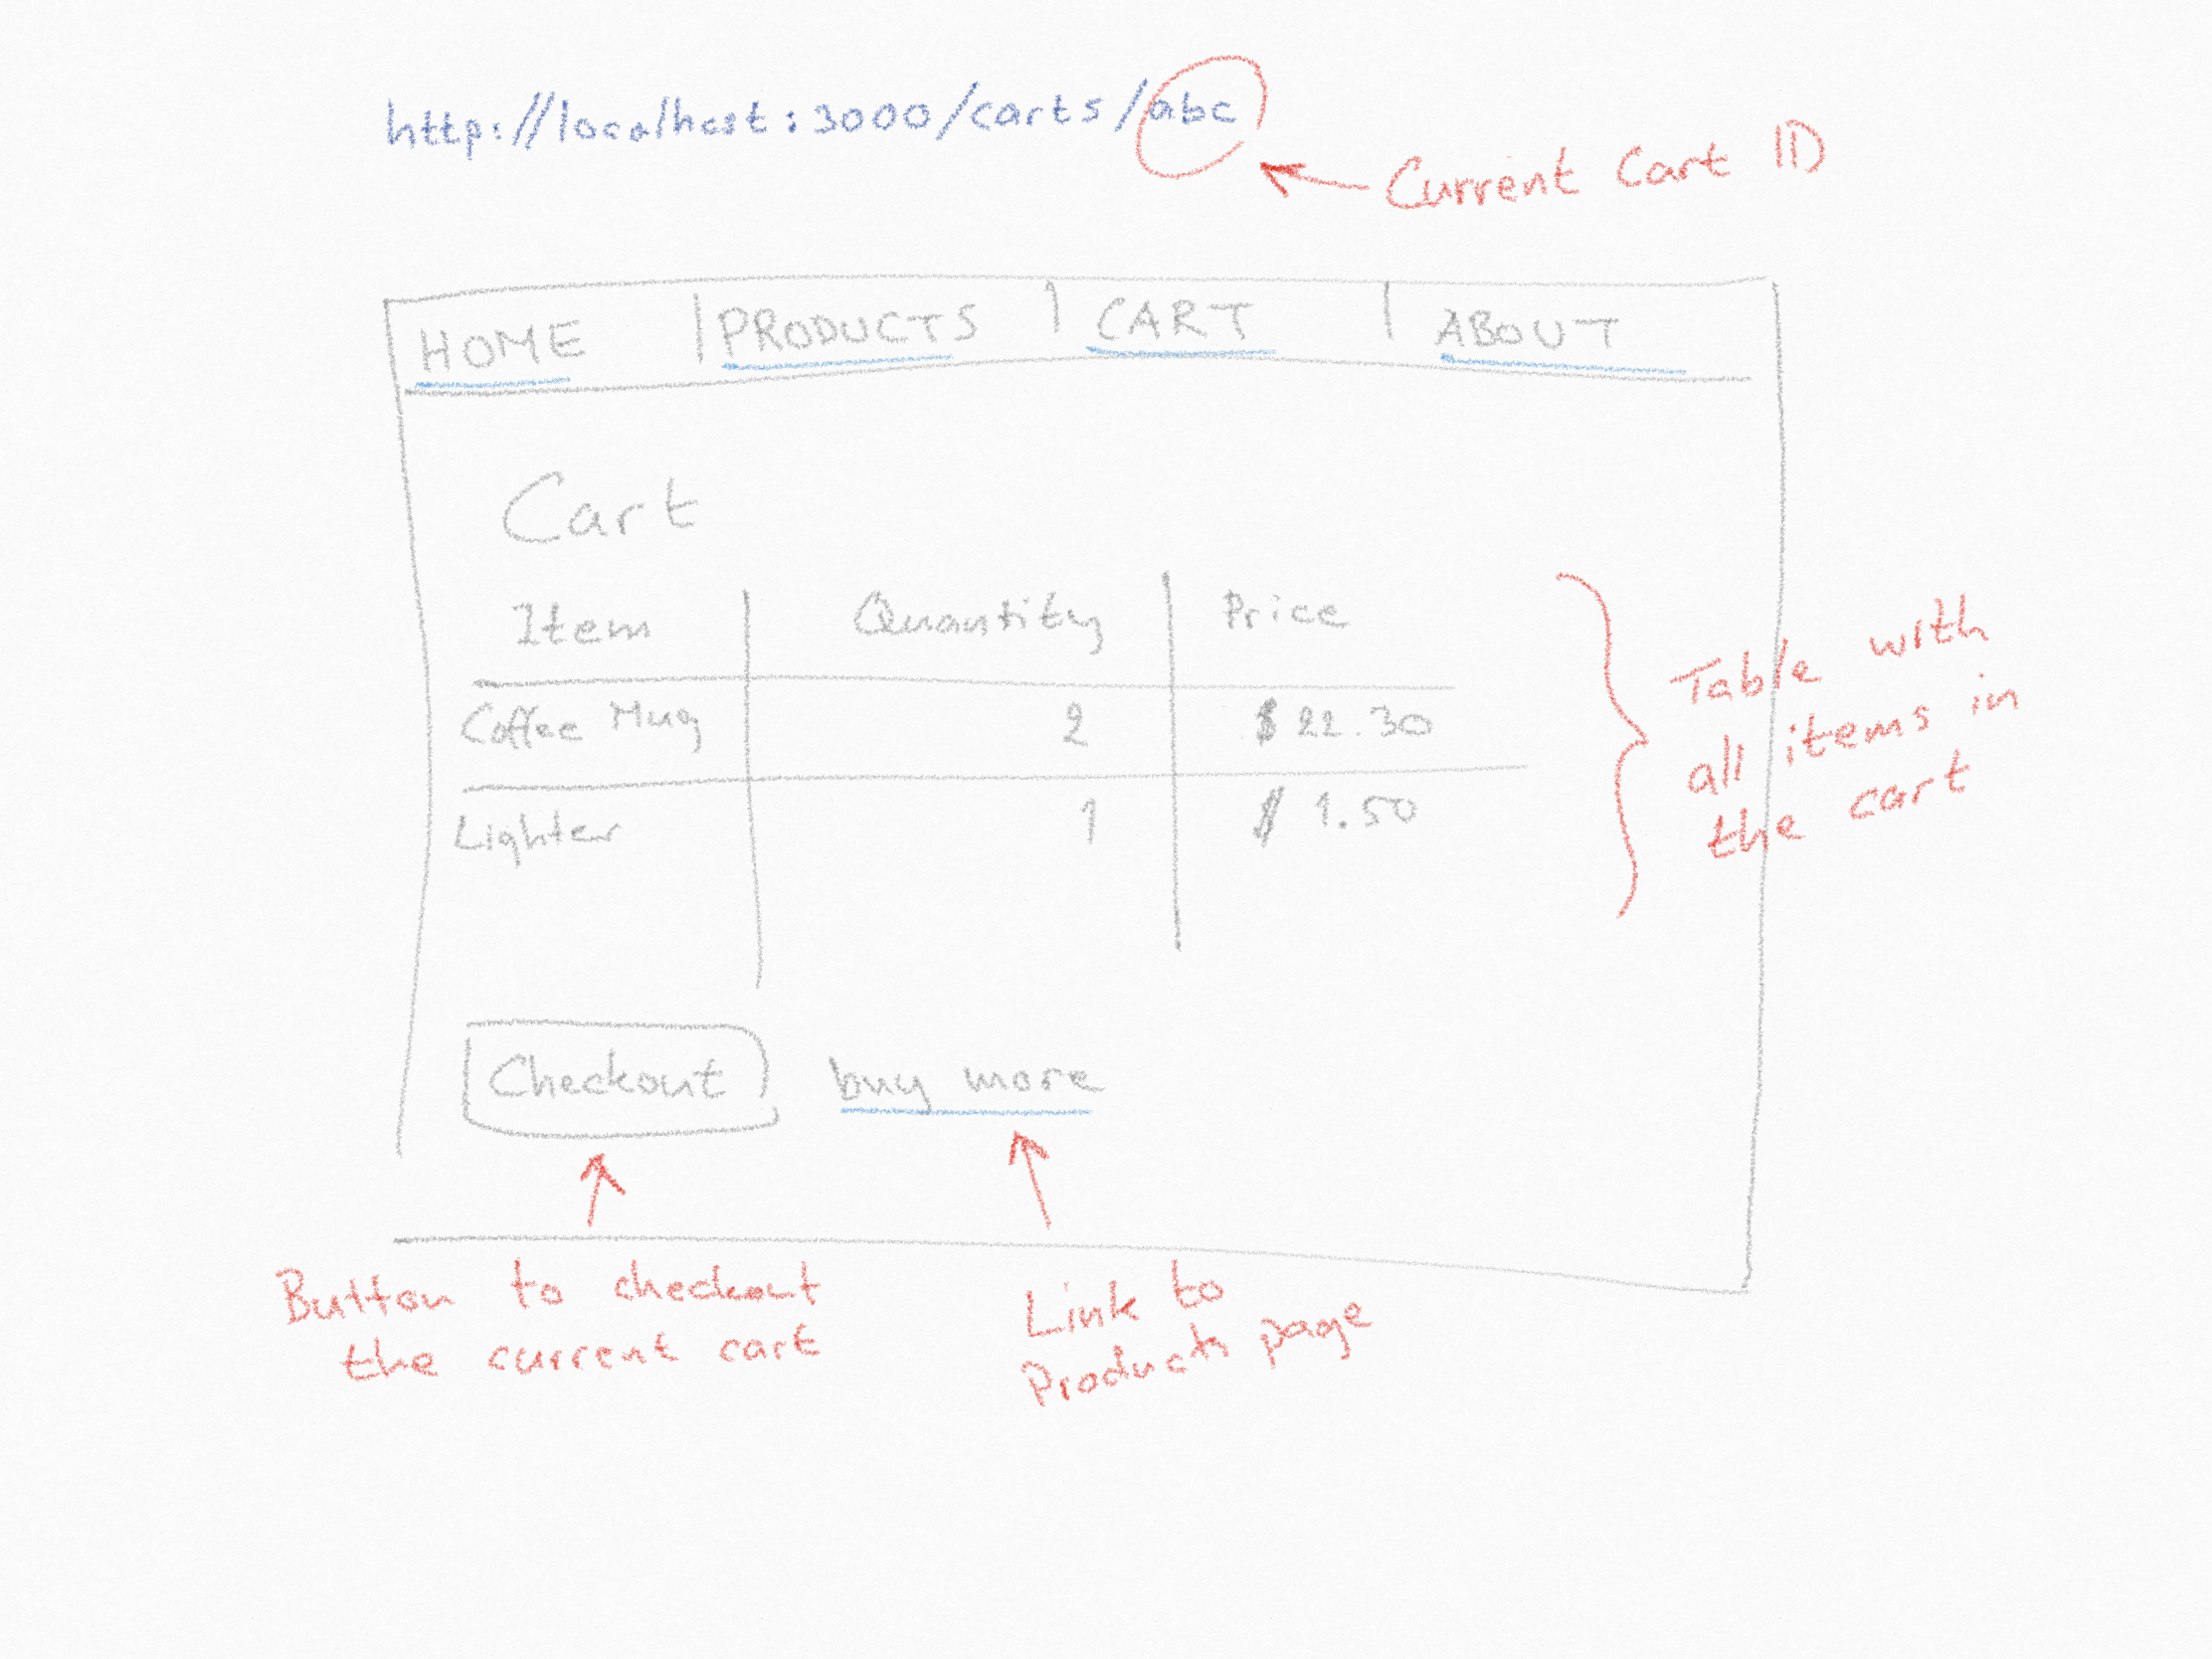 http://localhost:3000/carts/abc
Current Cart ID
HOME PRODUCTS CART ABOUT
Cart
Item Quantity Price
Coffee Mug 2 $22.30
Lighter 1 $1.50
Table with
all items in
the cart
Checkout buy more
Button to checkout
the current cart
Link to
Products page